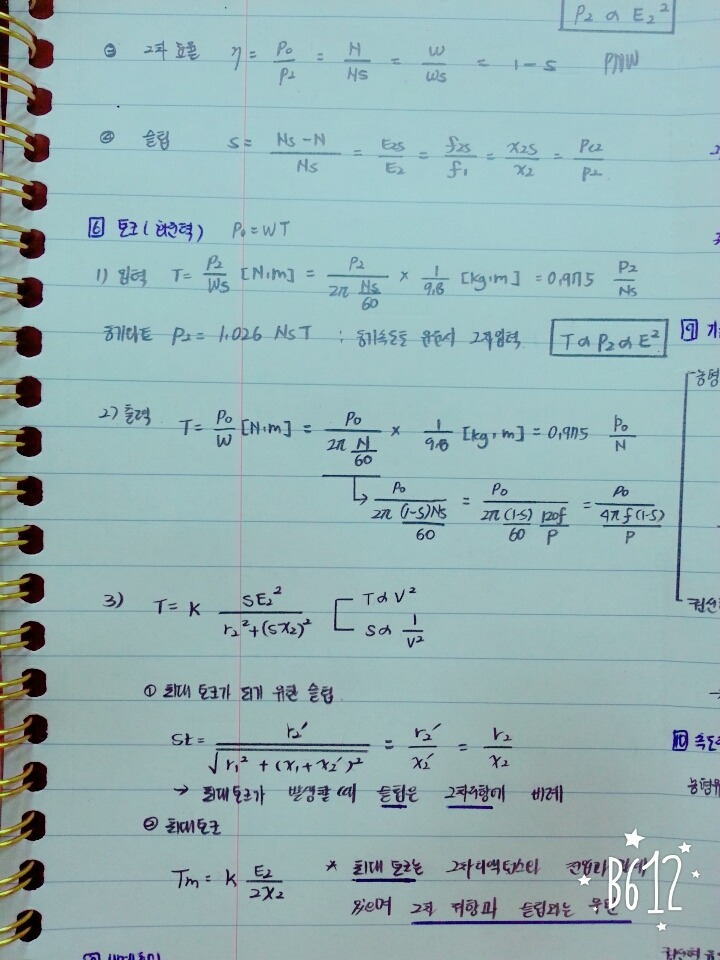 P2 ∝ E2²
③ 2차 효율 η = P0/P2 = N/Ns = W/Ws = 1-s PNW
④ 슬립 s = Ns-N/Ns = E2s/E2 = f2s/f1 = x2s/x2 = Pc2/P2
6 토크(회전력) P0 = WT
1) 입력 T = P2/Ws [N·m] = P2/2π Ns/60 × 1/9.8 [kg·m] = 0.975 P2/Ns
동기와트 P2 = 1.026 Ns T : 동기속도로 운전시 2차입력 T ∝ P2 ∝ E²
9
농형
2) 출력 T = P0/W [N·m] = P0/2π N/60 × 1/9.8 [kg·m] = 0.975 P0/N
P0/2π (1-s)Ns/60 = P0/2π(1-s)/60 120f/P = P0/4πf(1-s)/P
3) T = K sE2²/r2²+(sx2)² T ∝ V²
s ∝ 1/V²
권선
① 최대 토크가 되기 위한 슬립
st = r2′/√r1²+(x1+x2′)² = r2′/x2′ = r2/x2
10 속도
→ 최대토크가 발생할 때 슬립은 2차저항에 비례
농형유
② 최대토크
Tm = K E2/2x2 * 최대 토크는 2차리액턴스와 전압과
있으며 2차 저항과 슬립과는 무관
B612